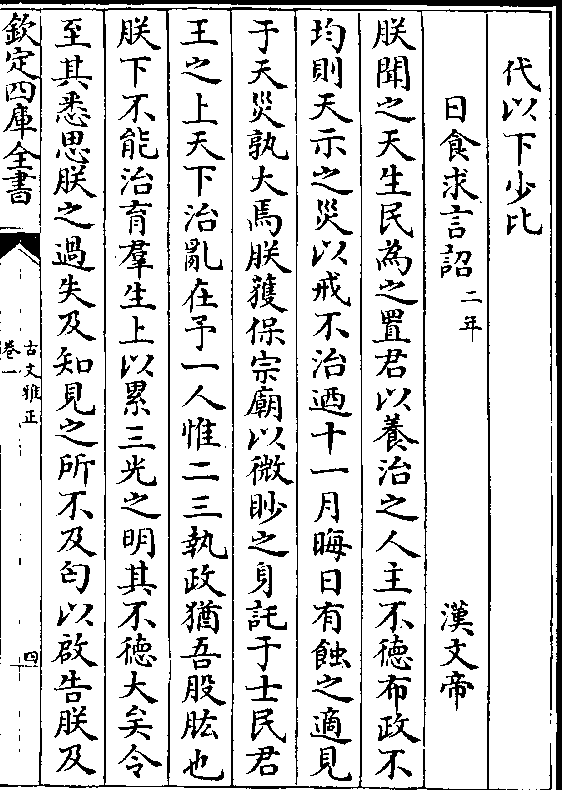 代以下少比
日食求言詔二年　漢文帝
朕聞之天生民為之置君以養治之人主不德布政不
均則天示之災以戒不治迺十一月晦日有蝕之適見
于天災孰大焉朕獲保宗廟以微眇之身託于士民君
王之上天下治亂在予一人惟二三執政猶吾股肱也
朕下不能治育羣生上以累三光之明其不德大矣令
至其悉思朕之過失及知見之所不及匄以啟告朕及
欽定四庫全書
古文雅正
卷一
四